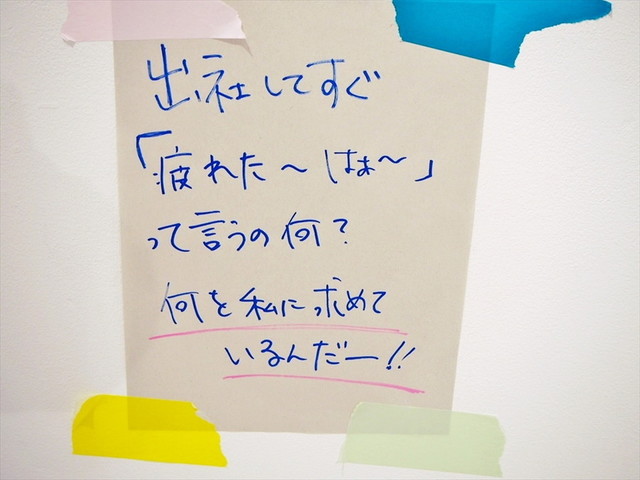 出社してすぐ
「疲れた〜はぁ〜」
って言うの何？
何を私に求めて
いるんだー!!